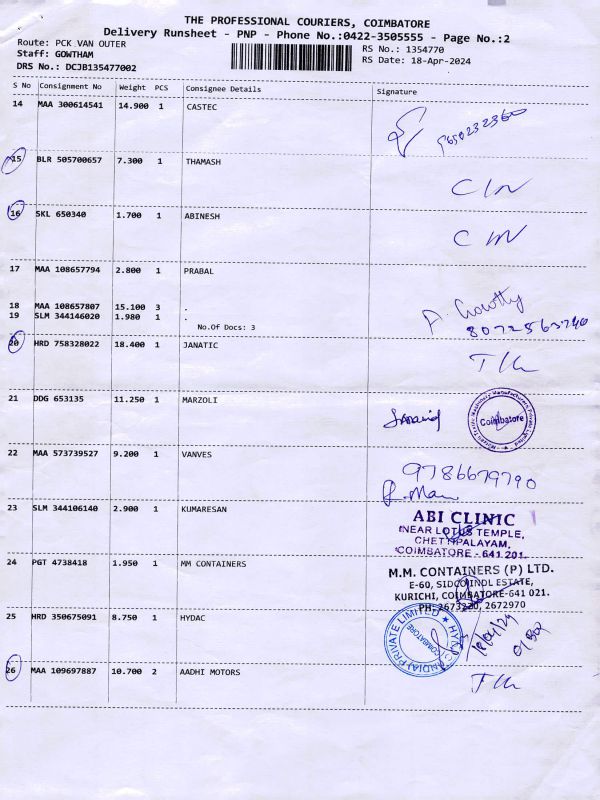 THE PROFESSIONAL COURIERS, COIMBATORE
Delivery Runsheet - PNP - Phone No.:0422-3505555 - Page No.:2
Route: PCK VAN OUTER
RS No.: 1354770
Staff: GOWTHAM
RS Date: 18-Apr-2024
DRS No.: DCJB135477002
S No Consignment No Weight PCS Consignee Details Signature
14 MAA 300614541 14.900 1 CASTEC
9650232360
15 BLR 505700657 7.300 1 THAMASH
16 SKL 650340 1.700 1 ABINESH
17 MAA 108657794 2.800 1 PRABAL
18 MAA 108657807 15.100 3 .
19 SLM 344146020 1.980 1 .
No.Of Docs: 3
8072563740
20 HRD 758328022 18.400 1 JANATIC
21 DDG 653135 11.250 1 MARZOLI
Coimbatore
22 MAA 573739527 9.200 1 VANVES
9786679790
23 SLM 344106140 2.900 1 KUMARESAN
ABI CLINIC
NEAR LOTUS TEMPLE,
CHETTIPALAYAM,
COIMBATORE - 641 201.
24 PGT 4738418 1.950 1 MM CONTAINERS
M.M. CONTAINERS (P) LTD.
E-60, SIDCO INDL ESTATE,
KURICHI, COIMBATORE-641 021.
PH: 2673220, 2672970
25 HRD 350675091 8.750 1 HYDAC
HYDAC (INDIA) PRIVATE LIMITED
COIMBATORE
18/04/24
26 MAA 109697887 10.700 2 AADHI MOTORS